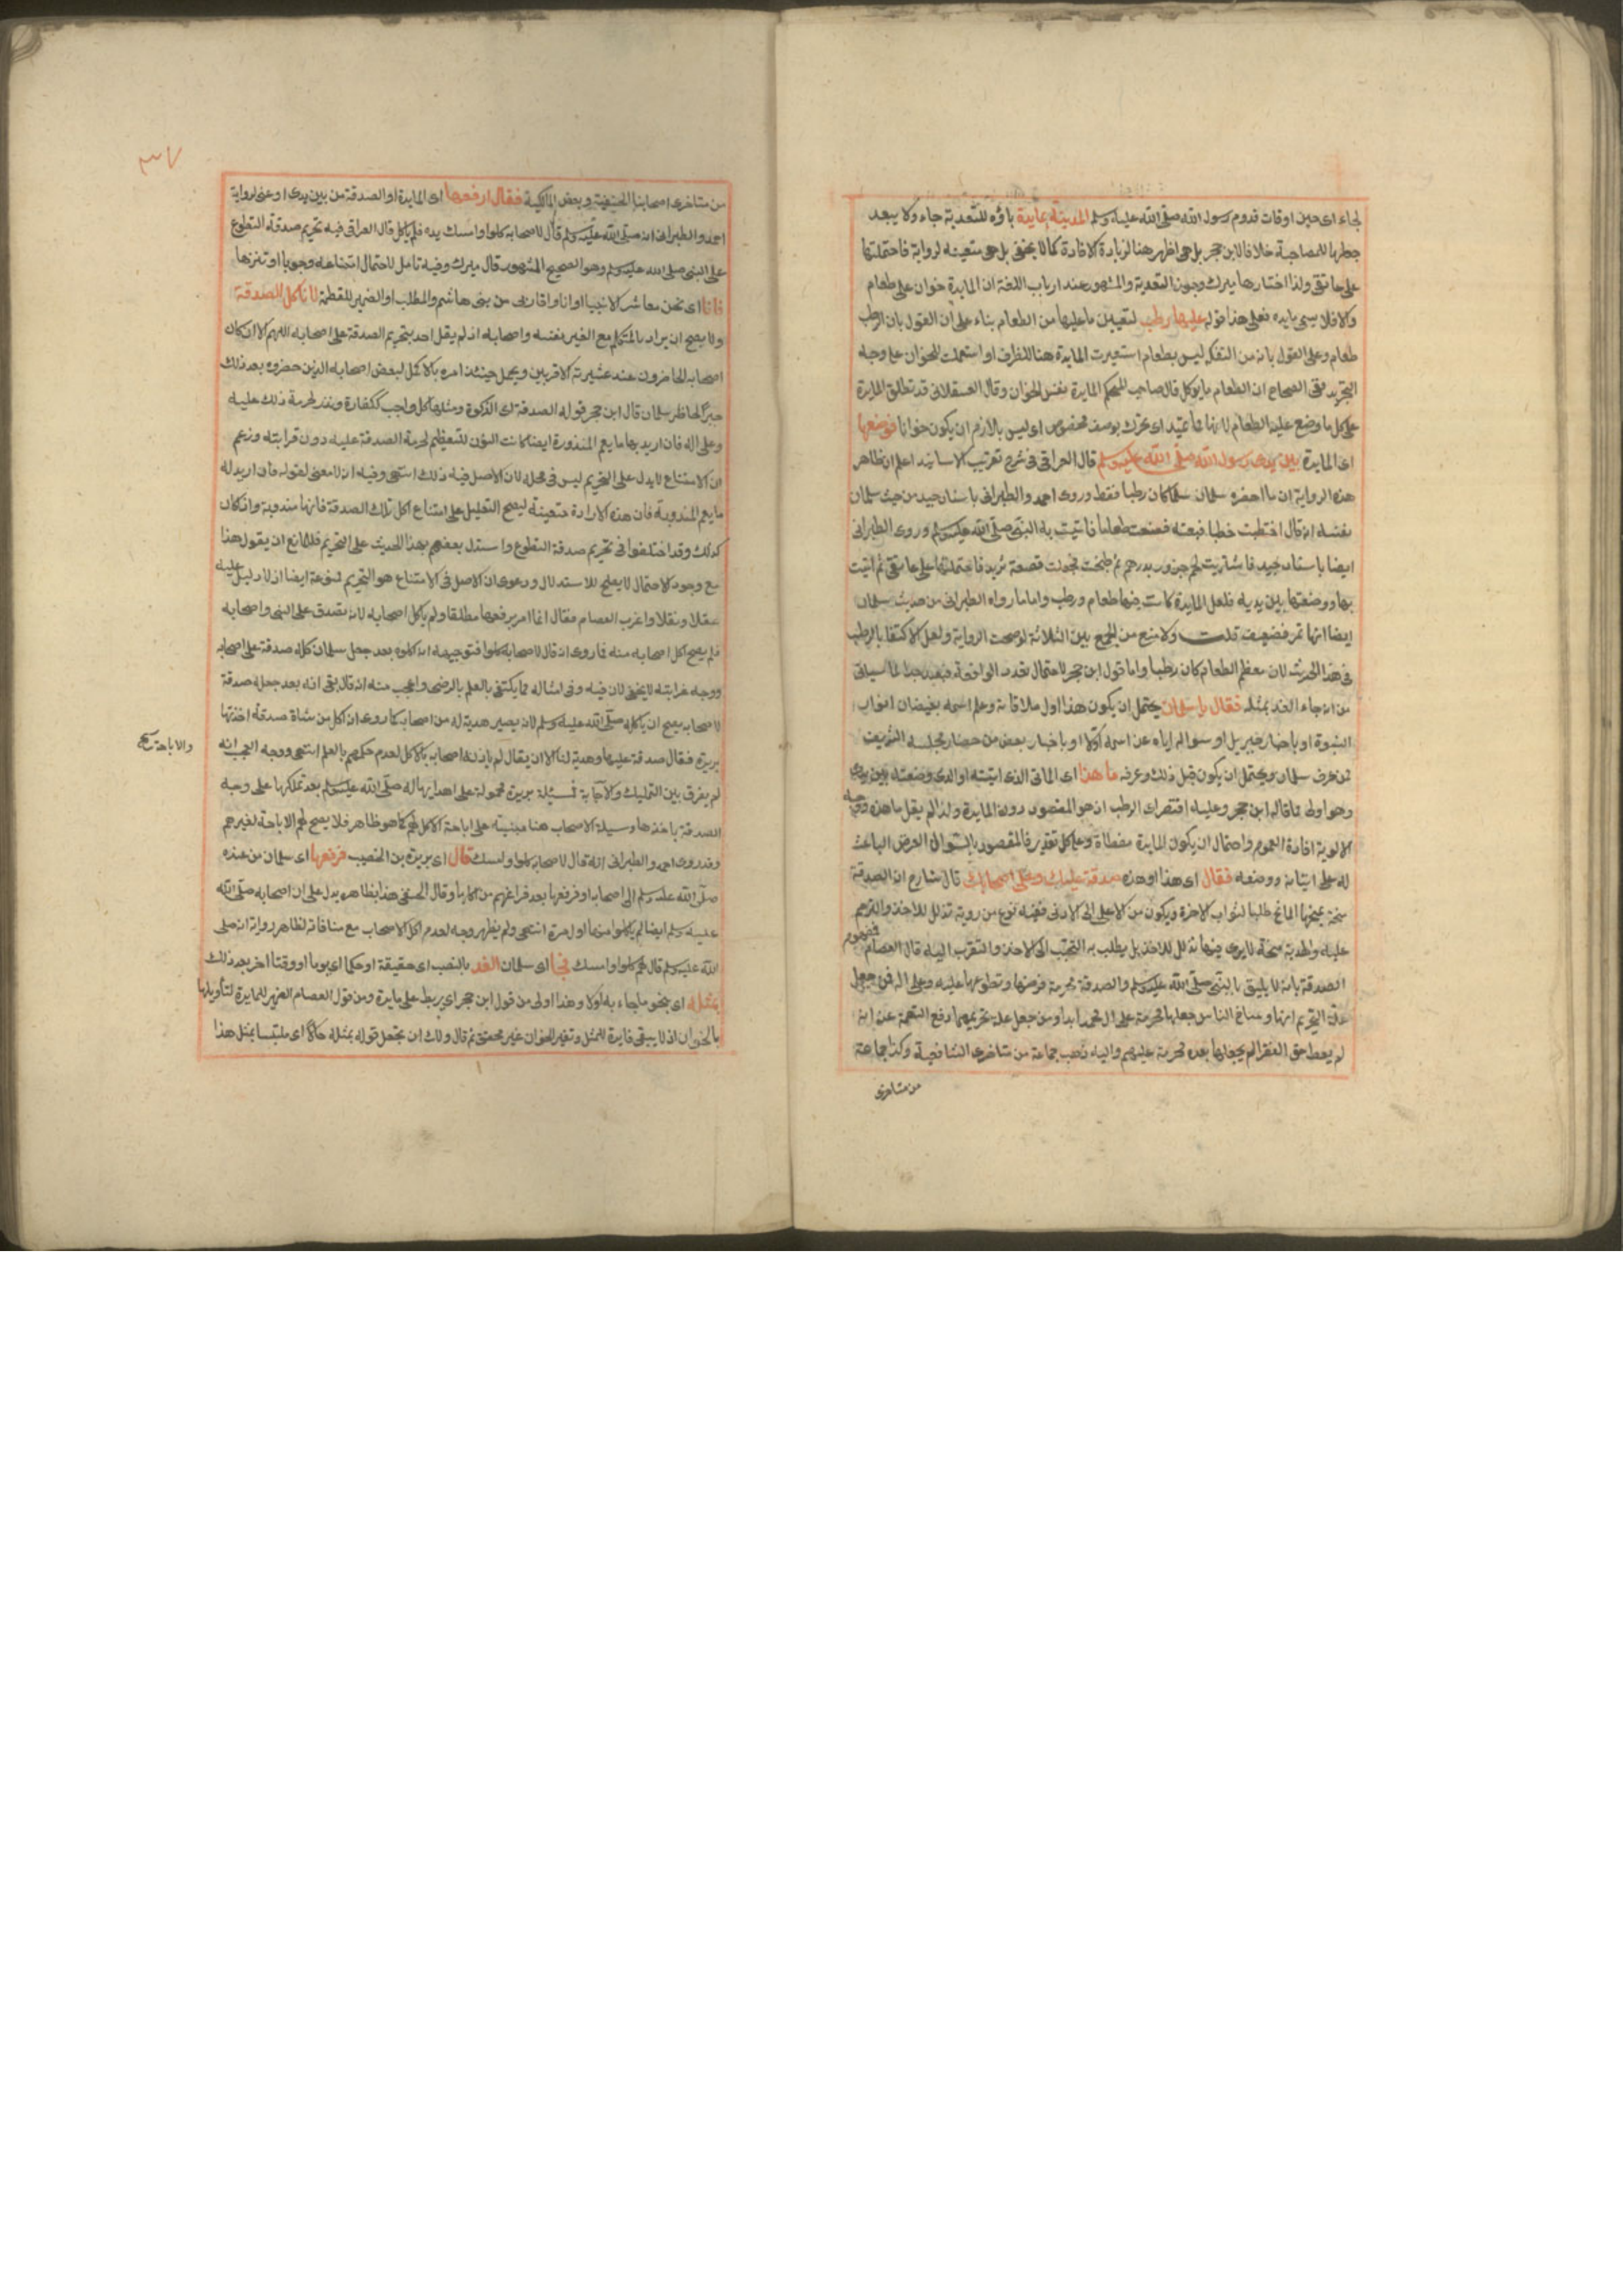 لجاء اى حين اوقات قدوم رسول الله صلى الله عليه وسلم المدينة بمايدة باؤه للتعدية جاء ولا يبعد
جعلها للمصاحبة خلافا لابن حجر بل هى اظهر هنا لزيادة الافادة كما لا يخفى بل هى متعينة لرواية فاحتملتها
على عاتقى ولذا اختارها ميرك وجوز التعدية والمشهور عند ارباب اللغة ان المايدة خوان على طعام
والا فلا يسمى مايدة فعلى هذا قوله عليها رطب لتعيين ما عليها من الطعام بناء على ان القول بان الرطب
طعام وعلى القول بانه من التفكه ليس بطعام استعيرت المايدة هنا للظرف او استعملت للخوان على وجه
التجريد ففى الصحاح ان الطعام ما يوكل قال صاحب المحكم المايدة نفس الخوان وقال العسقلانى قد تطلق المايدة
على كل ما وضع عليه الطعام لانها مما تميد اى تحرك بوصف مخصوص اى ليس بالازم ان يكون خوانا فوضعها
اى المايدة بين يدى رسول الله صلى الله عليه وسلم قال العراقى فى شرح تقريب الاسانيد اعلم ان ظاهر
هذه الرواية ان ما احضره سلمان كان رطبا فقط وروى احمد والطبرانى باسناد جيد من حديث سلمان
نفسه انه قال احتطبت حطبا فبعته فصنعت طعاما فاتيت به النبى صلى الله عليه وسلم وروى الطبرانى
ايضا باسناد جيد فاشتريت لحم جزور بدرهم ثم طبخت فجعلت قصعة ثريد فاحتملتها على عاتقى ثم اتيت
بها ووضعتها بين يديه فلعل المايدة كانت فيها طعام ورطب واما ما رواه الطبرانى من حديث سلمان
ايضا انها تمر فضعيف قلت ولا منع من الجمع بين الثلاثة لو صحت الرواية ولعل الاكتفا بالرطب
فى هذا الحديث لان معظم الطعام كان رطبا واما قول ابن حجر لاحتمال تعدد الواقعة فبعيد جدا لما سياتى
من انه جاء الغد بمثله فقال يا سلمان يحتمل ان يكون هذا اول ملاقاته وعلم اسمه بفيضان انوار
النبوة او باخبار جبريل او سواله اياه عن اسمه اولا او باخبار بعض من حضار مجلسه الشريف
ممن عرف سلمان ويحتمل ان يكون قبل ذلك وعرفه ما هذا اى الماتى الذى اتيته او الذى وضعته بين يدى
وهو اولى مما قاله ابن حجر وعليه اقتصرك الرطب اذ هو المقصود دون المايدة ولذا لم يقل ما هذه ووجه
الاولوية افادة العموم واحتمال ان يكون المايدة مغطاة وعلى كل تقدير فالمقصود بالسوال الغرض الباعث
له على اتيانه ووضعه فقال اى هذا او هذه صدقة عليك وعلى اصحابك قال شارح ان الصدقة
منحة يمنحها المانح طلبا لثواب الاخرة ويكون من الاعلى الى الادنى ففيه نوع من روية تذلل للاخذ والترحم
عليه والهدية منحة لا يرى فيها تذلل للاخذ بل يطلب به التحبب الى الاخذ والتقرب اليه قال العصام
الصدقة بانه لا يليق بالنبى صلى الله عليه وسلم والصدقة محرمة فرضها وتطوعها عليه وعلى اله فمن جعل
علة التحريم انها اوساخ الناس جعلها محرمة على ال محمد ابدا ومن جعل علة تحريمها دفع التهمة عنه انه
لم يعط حق الفقرا لم يجعلها بعده محرمة عليهم واليه ذهب جماعة من متاخرى الشافعية وكذا جماعة
من متاخرى
٣٧
من متاخرى اصحابنا الحنيفية وبعض المالكية فقال ارفعها اى المايدة او الصدقة من بين يدى او عنى لرواية
احمد والطبرانى انه صلى الله عليه وسلم قال لاصحابه كلوا وامسك يده فلم ياكل قال العراقى فيه تحريم صدقة التطوع
على النبى صلى الله عليه وسلم وهو الصحيح المشهور قال ميرك وفيه تامل لاحتمال امتناعه وجوبا او تنزها
فانا اى نحن معاشر الانبيا او انا واقاربى من بنى هاشم والمطلب او الضمير للعظمة لا ناكل الصدقة
ولا يصح ان يراد بالمتكلم مع الغير نفسه واصحابه اذ لم يقل احد بتحريم الصدقة على اصحابه اللهم الا ان كان
اصحابه الحاضرون عنده عشيرته الاقربين ويحمل حينئذ امره بالاكل لبعض اصحابه الذين حضروه بعد ذلك
جبرا لخاطر سلمان قال ابن حجر قوله الصدقة اى الزكوة ومثلها كل واجب ككفارة ونذر لحرمة ذلك عليه
وعلى اله فان اريد بها ما يعم المندورة ايضا كانت النون للتعظيم لحرمة الصدقة عليه دون قرابته وزعم
ان الامتناع لا يدل على التحريم ليس فى محله لان الاصل فيه ذلك انتهى وفيه انه لا معنى لقوله فان اريد له
ما يعم المندوبة فان هذه الارادة متعينة ليصح التعليل على امتناع اكل تلك الصدقة فانها مندوبة وان كان
كذلك وقد اختلفوا فى تحريم صدقة التطوع واستدل بعضهم بهذا الحديث على التحريم فللمانع ان يقول هذا
مع وجود الاحتمال لا يصلح للاستدلال ودعوى ان الاصل فى الامتناع هو التحريم ممنوعة ايضا اذ لا دليل عليه
عقلا ونقلا واغرب العصام فقال انما امر برفعها مطلقا ولم ياكل اصحابه لانه تصدق على النبى واصحابه
فلم يصح اكل اصحابه منه فما روى انه قال لاصحابه كلوا فتوجيهه انه اكلوه بعد جعل سلمان كله صدقة على اصحابه
ووجه غرابته لا يخفى لان فيه وفى امثاله مما يكتفى بالعلم بالرضى واعجب منه انه قال بقى انه بعد جعله صدقة
لاصحابه يصح ان ياكله صلى الله عليه وسلم لانه يصير هدية له من اصحابه كما روى انه اكل من شاة صدقة اخذتها
بريرة فقال صدقة عليها وهدية لنا الا ان يقال لم ياذن له اصحابه بالاكل لعدم حكمهم بالعلم انتهى ووجه العجب انه
لم يفرق بين التمليك والاباحة فمسئلة بريرة محمولة على اهدايها له صلى الله عليه وسلم بعد تملكها على وجه
والاباحة صح
الصدقة باخذها ومسيلة الاصحاب هنا مبنية على اباحة الاكل لهم كما هو ظاهر فلا يصح لهم الاباحة لغيرهم
وقد روى احمد والطبرانى انه قال لاصحابه كلوا وامسك قال اى بريدة بن الخصيب فرفعها اى سلمان من عنده
صلى الله عليه وسلم الى اصحابه او فرفعها بعد فراغهم من اكلها وقال الحنفى هذا بظاهره يدل على ان اصحابه صلى الله
عليه وسلم ايضا لم ياكلوا منها اول مرة انتهى ولم يظهر وجه لعدم اكل الاصحاب مع منافاته لظاهر رواية انه صلى
الله عليه وسلم قال لهم كلوا وامسك فجا اى سلمان الغد بالنصب اى حقيقة او حكما اى يوما او وقتا اخر بعد ذلك
بمثله اى بنحو ما جاء به اولا وهذا اولى من قول ابن حجر اى برطب على مايدة ومن قول العصام الضمير للمايدة لتاويلها
بالخوان اذ لا يبقى فايدة للمثل وتغير الخوان غير محقق ثم قال ولك ان تجعل قوله بمثله حالا اى ملتبسا بمثل هذا